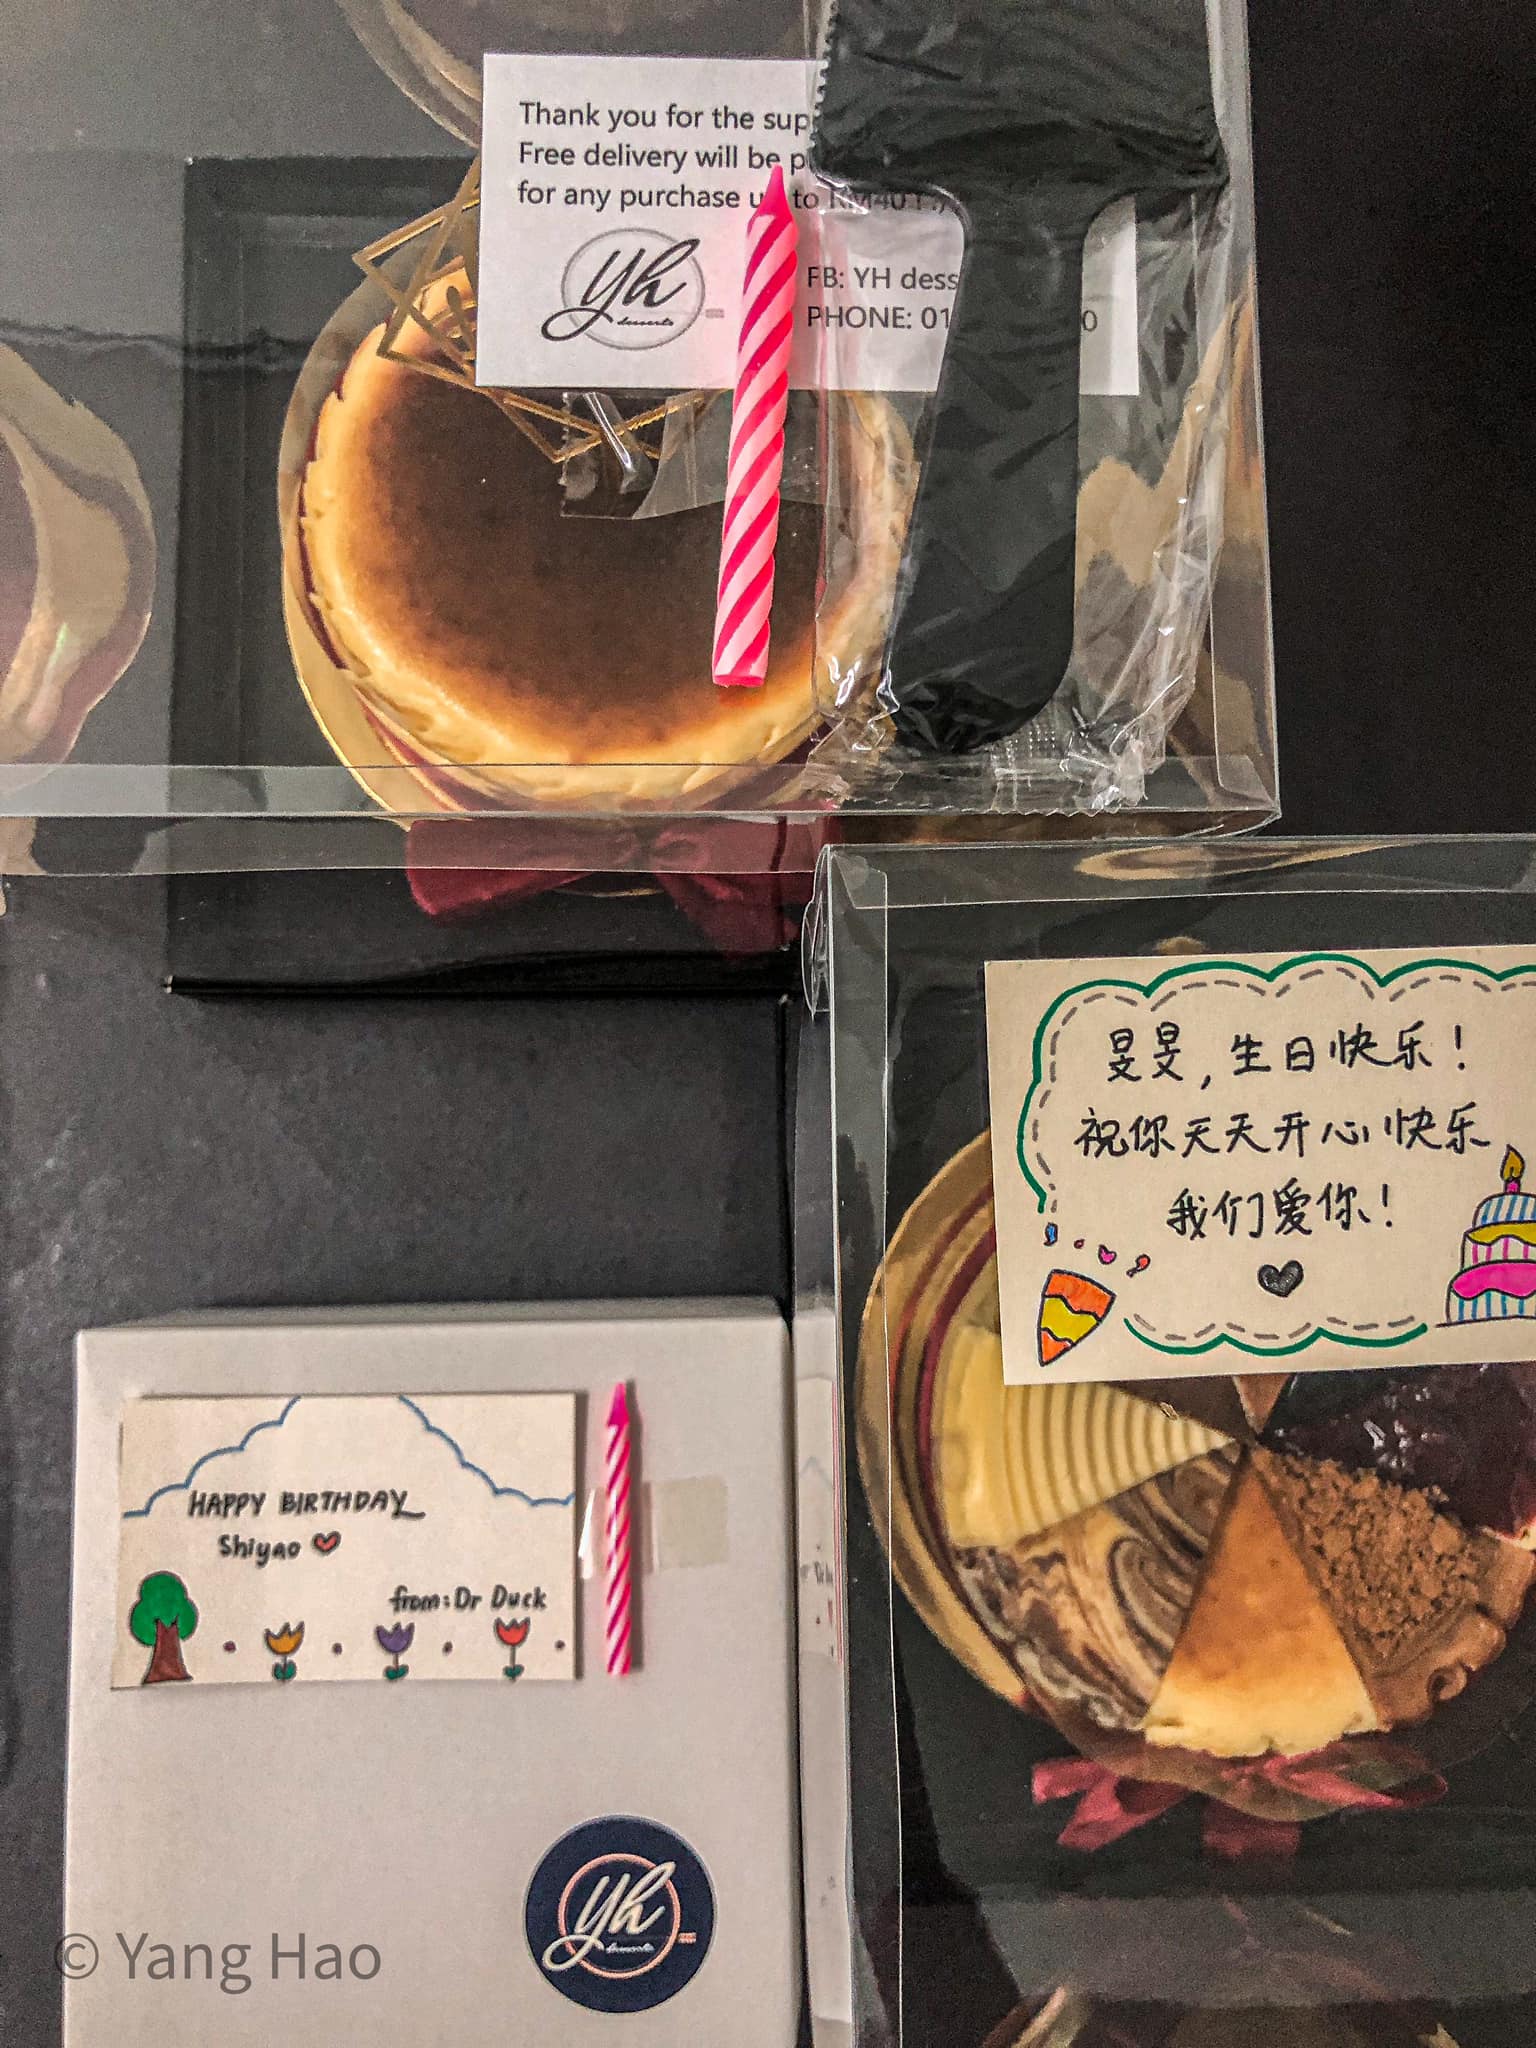 Thank you for the
Free delivery will be
for any purchase to RM40
Yh
desserts
FB: YH
PHONE:
旻旻，生日快乐！
祝你天天开心快乐
我们爱你！
HAPPY BIRTHDAY
Shiyao
from: Dr Duck
Yh
desserts
© Yang Hao